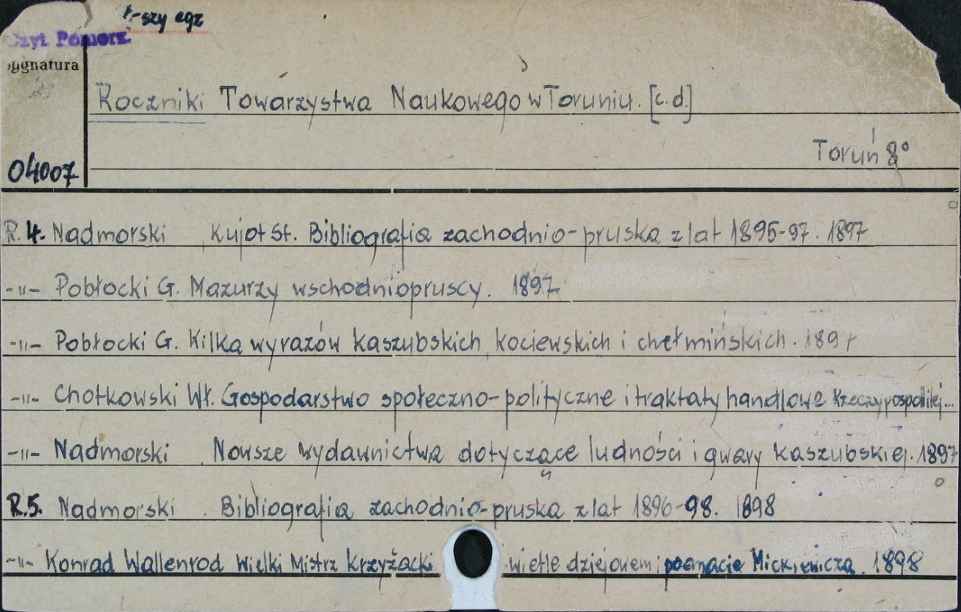 1-szy egz
Czyt. Pomorz.
Sygnatura
Roczniki Towarzystwa Naukowego w Toruniu. [c.d.]
Toruń 8°
04007
R.4. Nadmorski Kujot St. Bibliografia zachodnio-pruska z lat 1895-97. 1897
-"- Pobłocki G. Mazurzy wschodniopruscy. 1897
-"- Pobłocki G. Kilka wyrazów kaszubskich, kociewskich i chełmińskich. 1897
-"- Chotkowski Wł. Gospodarstwo społeczno-polityczne i traktaty handlowe Rzeczypospolitej...
-"- Nadmorski Nowsze wydawnictwa dotyczące ludności i gwary kaszubskiej. 1897
R.5. Nadmorski . Bibliografia zachodnio-pruska z lat 1896-98. 1898
-"- Konrad Wallenrod Wielki Mistrz Krzyżacki wietle dziejowem i poemacie Mickiewicza. 1898